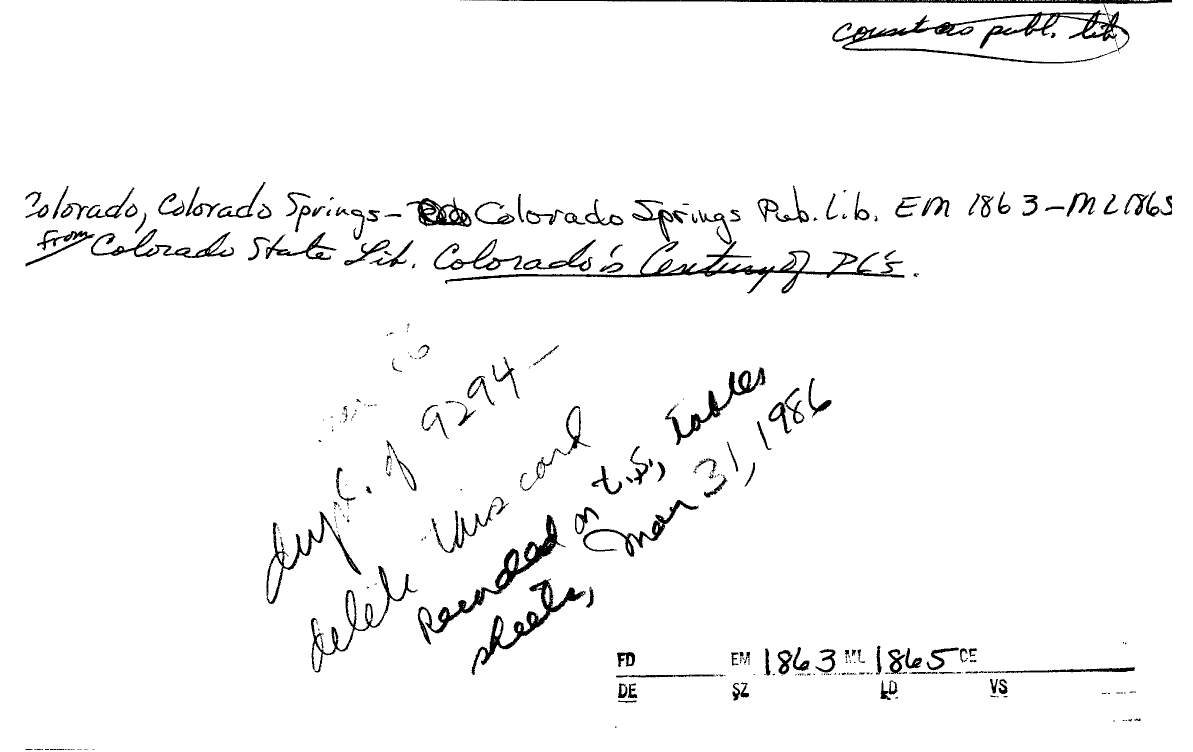 count as publ. lib
Colorado, Colorado Springs- Colorado Springs Pub. Lib. EM 1863-ML1865
from Colorado State Lib. Colorado's Century of PL's.
dupl. of 9294-
delete this card
Recorded on t.s., tables
sheets, Mar 31, 1986
FD EM 1863 ML 1865 CE
DE SZ LD VS